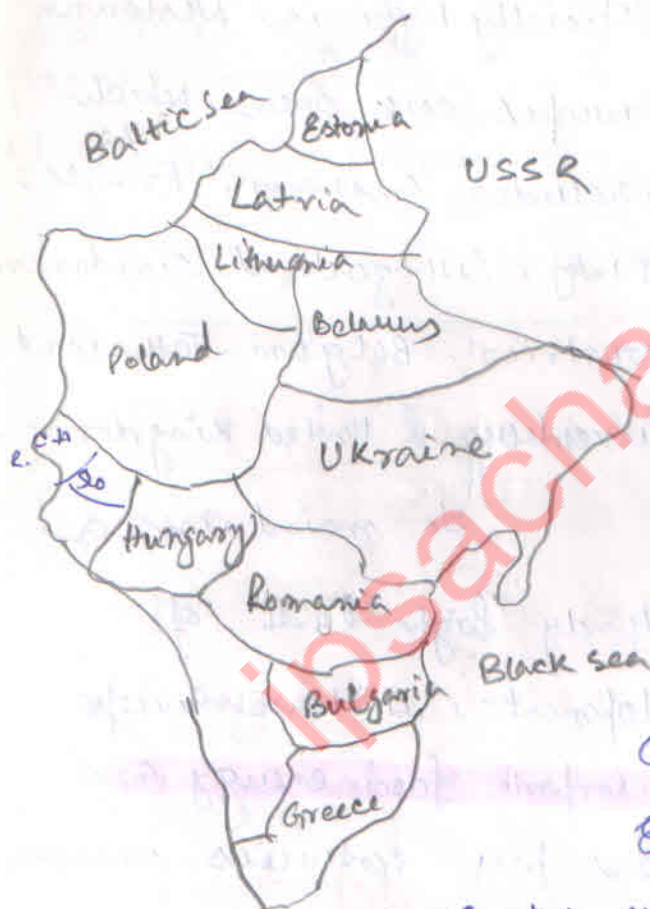 Baltic sea
Estonia
USSR
Latvia
Lithuania
Belarus
Poland
Ukraine
Hungary
Romania
Black sea
Bulgaria
Greece
ipsacha